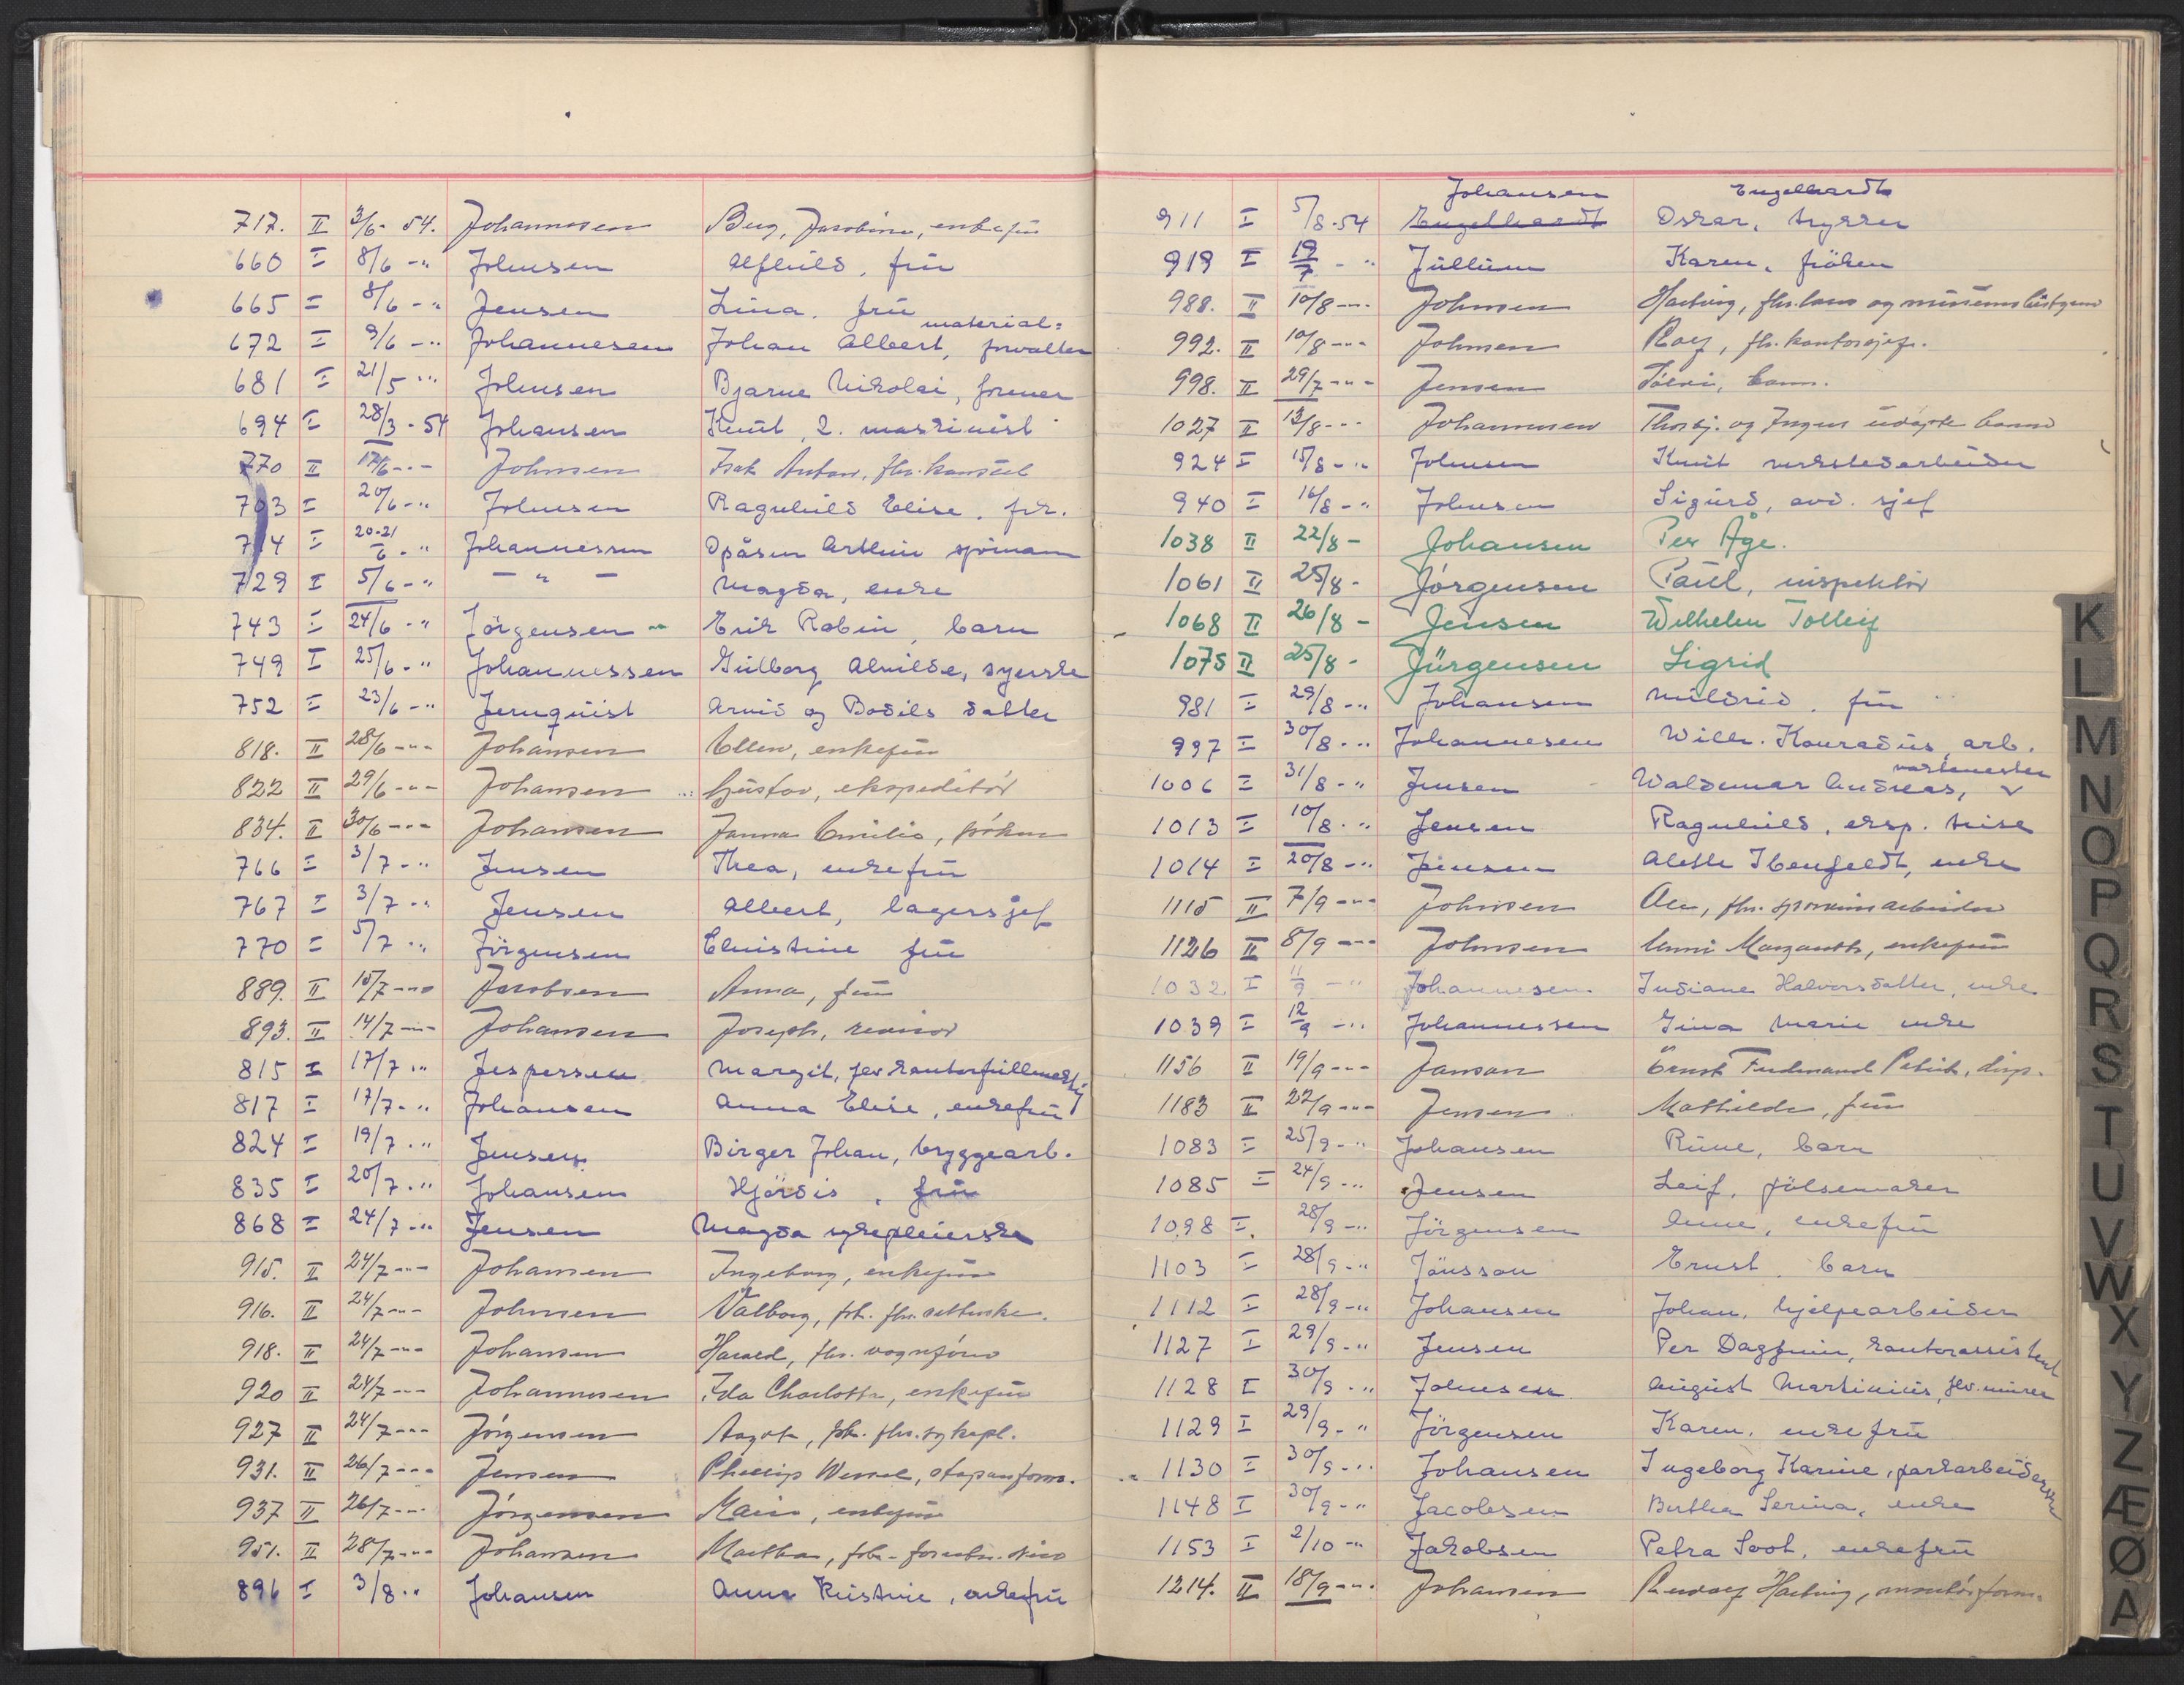 717. II 3/6 - 54. Johannesen Berg, Jacobine, enkefru
660 I 8/6 - " Johnsen Alfhild, fru
665 I 8/6 - " Jensen Lina, fru
672 I 9/6 - " Johannesen Johan Albert, material= forvalter
681 I 21/5 " Johnsen Bjarne Nikolai, former
694 I 28/3 - 54 Johansen Knut, 2. maskinist
770 II 17/6 - " - Johnsen Isak Anton, fhv. konsul
703 I 20/6 - " Johnsen Ragnhild Elise, frk.
714 I 20-21/6 - " Johannessen Arthur sjömann
729 I 5/6 - " - " - Magda, enke
743 I 24/6 - " Jörgensen Erik Robin, barn
749 I 25/6 - " Johannessen Gulborg Alvilde, syerske
752 I 23/6 - " Jernquist Arvid og Bodils datter
818. II 28/6 - " - Johansen Ellen, enkefru
822 II 29/6 - " - Johansen Gustav, ekspeditör
834. II 30/6 - " - Johansen Janna Emilie, fröken
766 I 3/7 - " Jensen Thea, enkefru
767 I 3/7 - " Jensen Albert, lagersjef
770 I 5/7 " Jörgensen Christine fru
889. II 10/7 - " - Jacobsen Anna, fru
893. II 14/7 - " - Johansen Joseph, revisor
815 I 17/7 " Jespersen Margit, fhv kontorfullmektig
817 I 17/7 - " Johansen Anna Elise, enkefru
824 I 19/7 " Jensen Birger Johan, bryggearb.
835 I 20/7 " Johansen Hjördis, fru
868 I 24/7 - " Jensen Magda sykepleierske
915. II 24/7 - " - Johansen Ingeborg, enkefru
916. II 24/7 - " - Johnsen Valborg, frk. fhv.
918. II 24/7 - " - Johansen Harald, fhv. vognförer
920 II 24/7 - " - Johannesen Ida Charlotte, enkefru
927 II 24/7 - " - Jörgensen Aagot, frk. fhv. sykepl.
931. II 26/7 - " - Jensen Phillip Wessel,
937 II 26/7 - " - Jörgensen enkefru
951. II 28/7 - " - Johansen Martha,
896 I 3/8 " Johansen Anna Kristine, enkefru
Johansen Engelhardt
911 I 5/8 - 54 Engelhardt Oskar, trykker
919 I 19/7 - " Jullum Karen, fröken
988. II 10/8 - " - Johnsen
992. II 10/8 - " - Johnsen Rolf, fh. kontorsjef.
998. II 29/7 - " - Jensen barn.
1027 II 13/8 - " - Johannesen Thorbj. og Ingers udöpte barn
924 I 15/8 - " Johnsen Knut verkstedarbeider
940 I 16/8 - " Johnsen Sigurd, avd. sjef
1038 II 22/8 - Johansen Per Åge.
1061 II 25/8 - Jörgensen Paul, inspektör
1068 II 26/8 - Jensen Wilhelm Tolleif
1075 II 25/8 - Jürgensen Sigrid
981 I 29/8 - " Johansen Mildrid, fru
997 I 30/8 - " Johannesen Wilh. Konradus, arb.
1006 I 31/8 - " Jensen Waldemar Andreas, vaktmester
1013 I 10/8 - " Jensen Ragnhild, eksp. trise
1014 I 20/8 - " Jensen Alette Ibenfeldt, enke
1115 II 7/9 - " - Johnsen
1126 II 8/9 - " - Johnsen Anni Margareth, enkefru
1032 I 11/9 - " Johannesen Indiane Halvorsdatter, enke
1039 I 12/9 - " Johannessen Gina Marie enke
1156 II 19/9 - " - Janson Ernst Ferdinand Patrick, disp.
1183 II 22/9 - " - Jensen Mathilde, fru
1083 I 25/9 - " Johansen Rune, barn
1085 I 24/9 - " Jensen Leif, pölsemaker
1098 I 28/9 - " Jörgensen Anne, enkefru
1103 I 28/9 - " Jönsson Ernst, barn
1112 I 28/9 - " Johansen Johan, hjelpearbeider
1127 I 29/9 - " Jensen Per Dagfinn, kontorassistent
1128 I 30/9 - " Johnsen August Martinius, fhv. murer
1129 I 29/9 - " Jörgensen Karen, enkefru
1130 I 30/9 - " Johansen Ingeborg Karine, parkarbeiderske
1148 I 30/9 - " Jacobsen Berthea Serina, enke
1153 I 2/10 - " Jakobsen Petra Soot, enkefru
1214. II 18/9 - " - Johansen Rudolf Hartvig, montörform.
K
L
M
N
O
P
Q
R
S
T
U
V
W
X
Y
Z
Æ
Ø
A